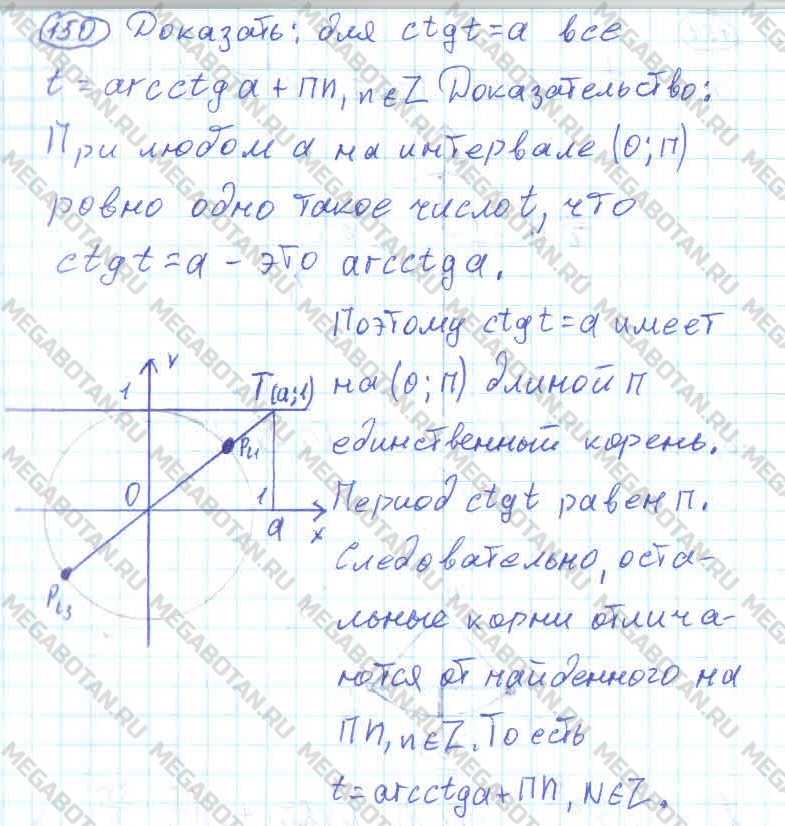 150 Доказать: для ctgt=a все
t=arcctga+Пn, n∈Z Доказательство:
При любом a на интервале (0;П)
ровно одно такое число t, что
ctgt=a - это arcctga.
Поэтому ctgt=a имеет
на (0;П) длиной П
единственный корень.
Период ctgt равен П.
Следовательно, оста-
льные корни отлича-
ются от найденного на
Пn, n∈Z. То есть
t=arcctga+Пn, N∈Z.
y
1
T(a;1)
Pt1
0
1
a
x
Pt3
MEGABOTAN.RU